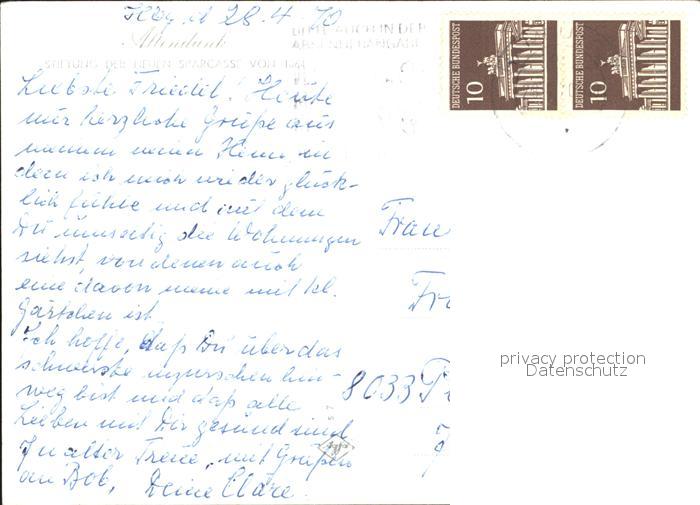 Hbg. d 28.4.70
Altendank
STIFTUNG DER NEUEN SPARCASSE VON 1864
Liebste Friedel! Heute
nur herzliche Grüße aus
meinem neuen Heim, in
dem ich mich wieder glück-
lich fühle und auf dem
Du umseitig die Wohnungen
siehst, von denen auch
eine davon meine mit kl.
Gärtchen ist.
Ich hoffe, daß Du über das
schwerste inzwischen hin-
weg bist und daß alle
Lieben mit Dir gesund sind
In alter Treue, mit Grüßen
an Bob, Deine Cläre.
DEUTSCHE BUNDESPOST 10
DEUTSCHE BUNDESPOST 10
ABSENDERANGABE
Frau
Fr
8033 P
privacy protection
Datenschutz